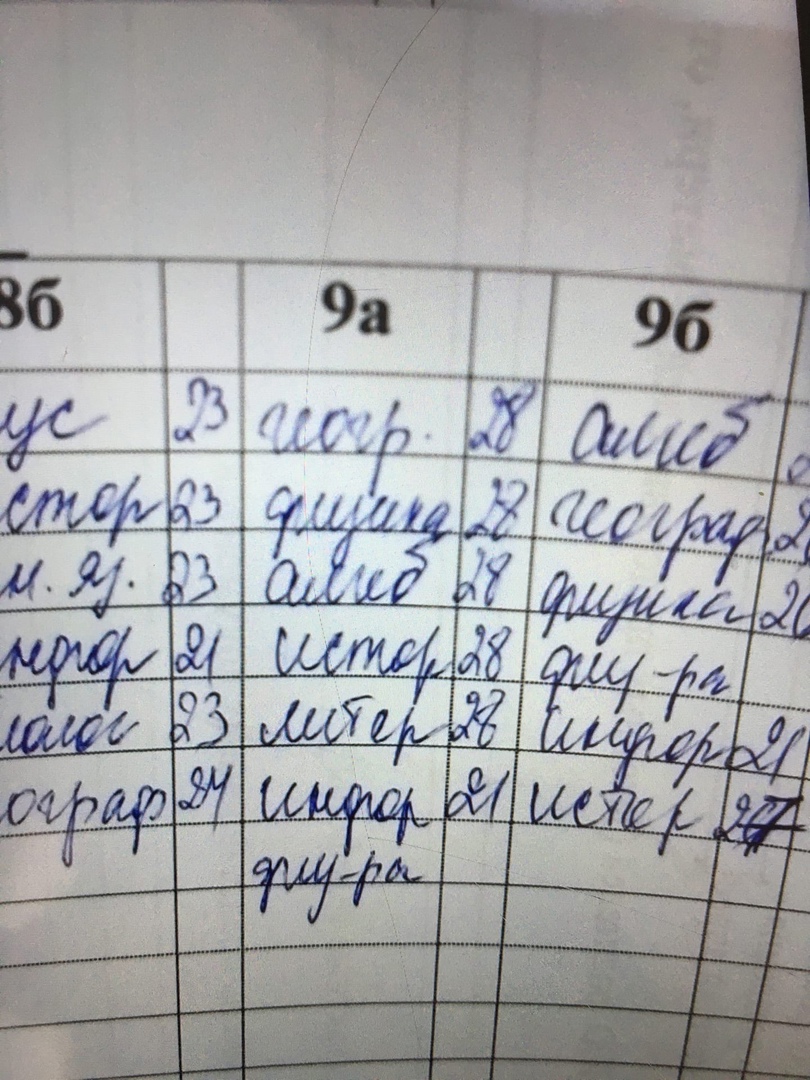 8б 9а 9б
ус 23 геогр. 28 алгеб
стор 23 физика 28 географ
м. яз. 23 алгеб 28 физика
нфор 21 истор 28 физ-ра
23 литер 28 инфор 21
ограф 24 инфор 21 истор
физ-ра